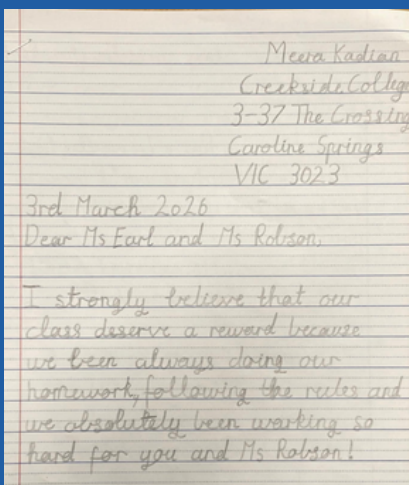 Meera Kadian
Creekside College
3-37 The Crossing
Caroline Springs
VIC 3023
3rd March 2026
Dear Ms Earl and Ms Robson,
I strongly believe that our
class deserve a reward because
we been always doing our
homework, following the rules and
we absolutely been working so
hard for you and Ms Robson!